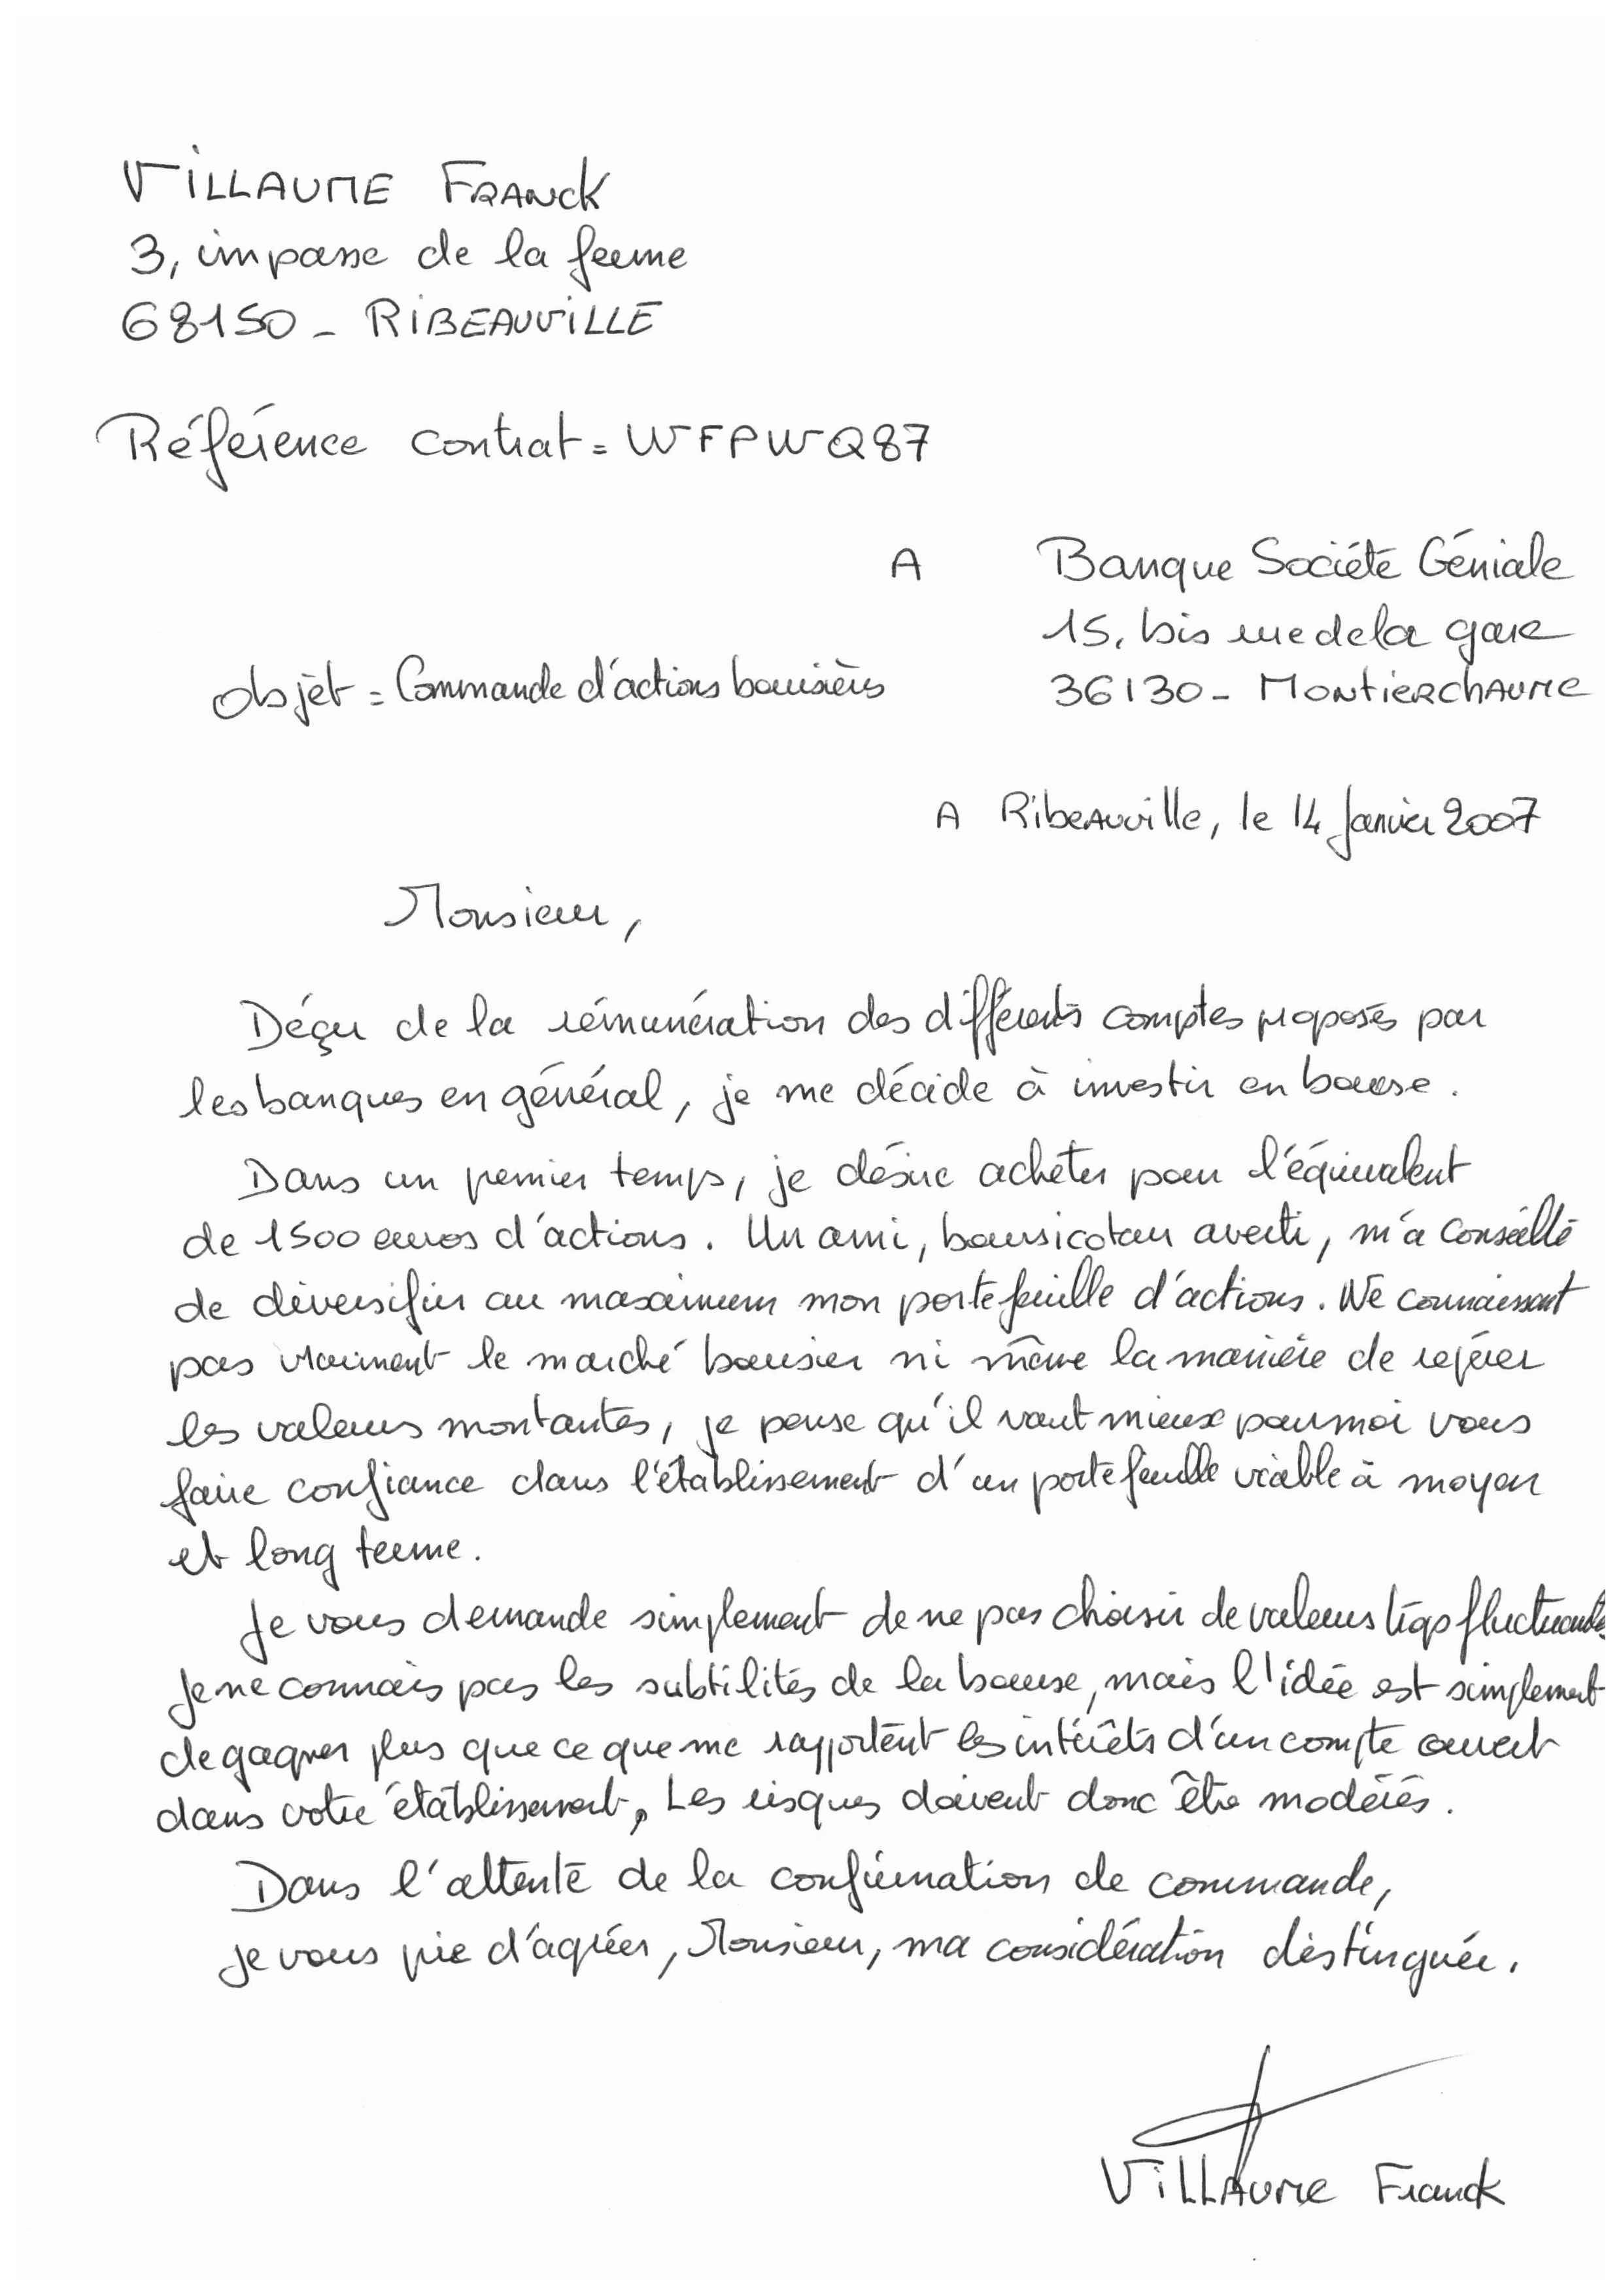 VILLAUME FRANCK
3, impasse de la ferme
68150 - RIBEAUVILLE
Référence contrat = WFPWQ87
A Banque Société Géniale
15, bis rue de la gare
Objet = Commande d'actions boursières
36130 - MONTIERCHAUME
A Ribeauville, le 14 Janvier 2007
Monsieur,
Déçu de la rémunération des différents comptes proposés par
les banques en général, je me décide à investir en bourse.
Dans un premier temps, je désire acheter pour l'équivalent
de 1500 euros d'actions. Un ami, boursicoteur averti, m'a conseillé
de diversifier au maximum mon portefeuille d'actions. Ne connaissant
pas vraiment le marché boursier ni même la manière de repérer
les valeurs montantes, je pense qu'il vaut mieux pour moi vous
faire confiance dans l'établissement d'un portefeuille viable à moyen
et long terme.
Je vous demande simplement de ne pas choisir de valeurs trop fluctuantes.
Je ne connais pas les subtilités de la bourse, mais l'idée est simplement
de gagner plus que ce que me rapportent les intérêts d'un compte ouvert
dans votre établissement. Les risques doivent donc être modérés.
Dans l'attente de la confirmation de commande,
je vous prie d'agréer, Monsieur, ma considération distinguée.
VILLAUME Franck